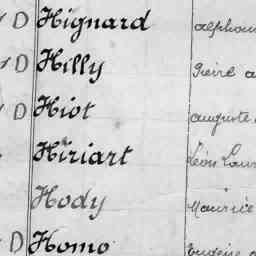 D Hignard alphon
D Hilly Pierre a
D Hiot auguste
Hiriart Léon Lau
Hody Maurice
D Homo Eugène